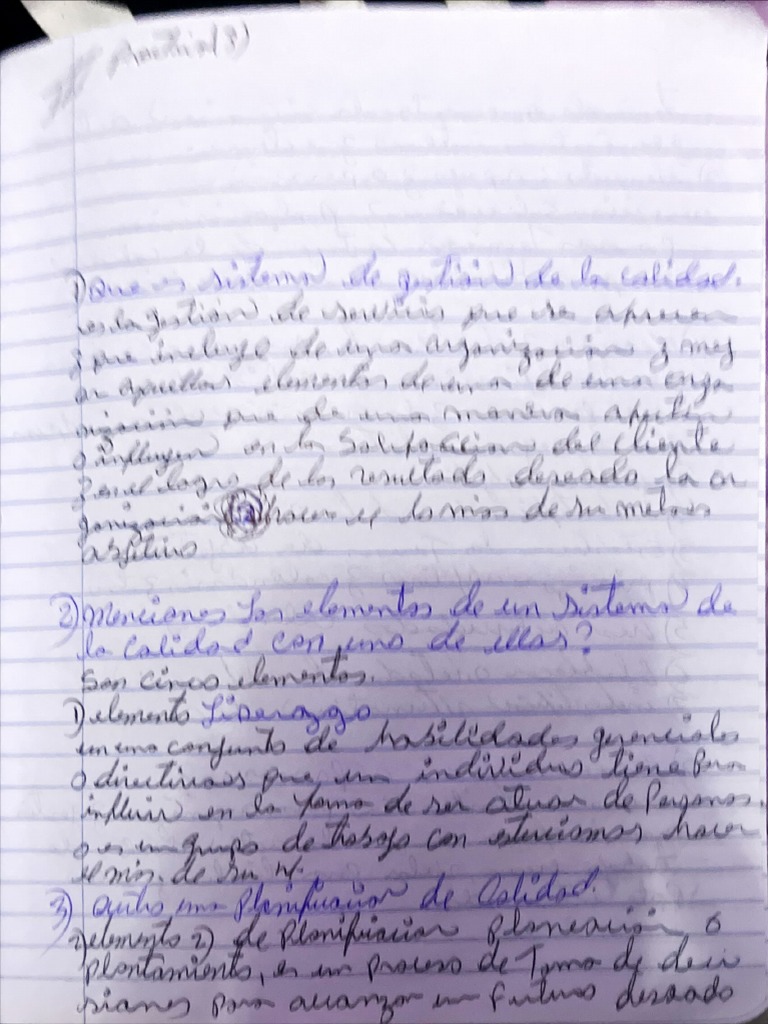 Practica (3)
1) Que es sistema de gestion de la calidad.
es la gestion de servicios que se
que incluye de una organizacion y
aquellos elementos de una de una orga
nizacion que de una manera
o influyen en la satisfacion del cliente
y en el logro de los resultado deseado la or
ganizacion de su
2) menciones los elementos de un sistema de
la calidad con uno de ellas?
Son cinco elementos.
1) elemento Liderazgo
en uno conjunto de habilidades gerenciales
o directivas que un individuo tiene para
influir en la forma de ser atuar de Personas.
o es un grupo de trabajo con
de su
3) una Planificacion de Calidad.
2) elemento 2) de Planificacion Planeacion o
plantamiento, es un proceso de Toma de deci
siones para alcanzar un futuro deseado